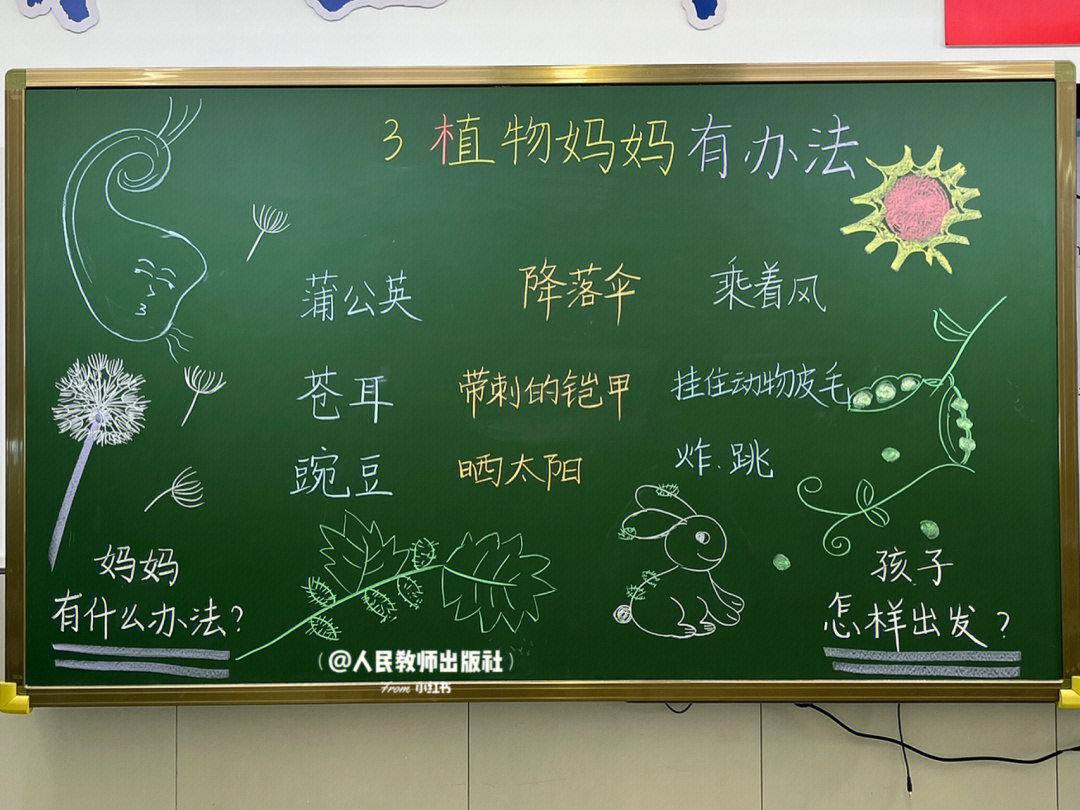 3 植物妈妈有办法
蒲公英 降落伞 乘着风
苍耳 带刺的铠甲 挂住动物皮毛
豌豆 晒太阳 炸.跳
妈妈
有什么办法?
孩子
怎样出发?
(@人民教师出版社)
From 小红书